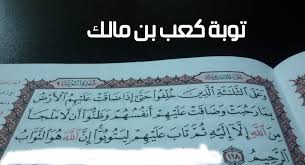 توبة كعب بن مالك
وَعَلَى الثَّلَاثَةِ الَّذِينَ خُلِّفُوا حَتَّىٰ إِذَا ضَاقَتْ عَلَيْهِمُ الْأَرْضُ
بِمَا رَحُبَتْ وَضَاقَتْ عَلَيْهِمْ أَنفُسُهُمْ وَظَنُّوا أَن لَّا مَلْجَأَ
مِنَ اللَّهِ إِلَّا إِلَيْهِ ثُمَّ تَابَ عَلَيْهِمْ لِيَتُوبُوا إِنَّ اللَّهَ هُوَ التَّوَّابُ
١١٨